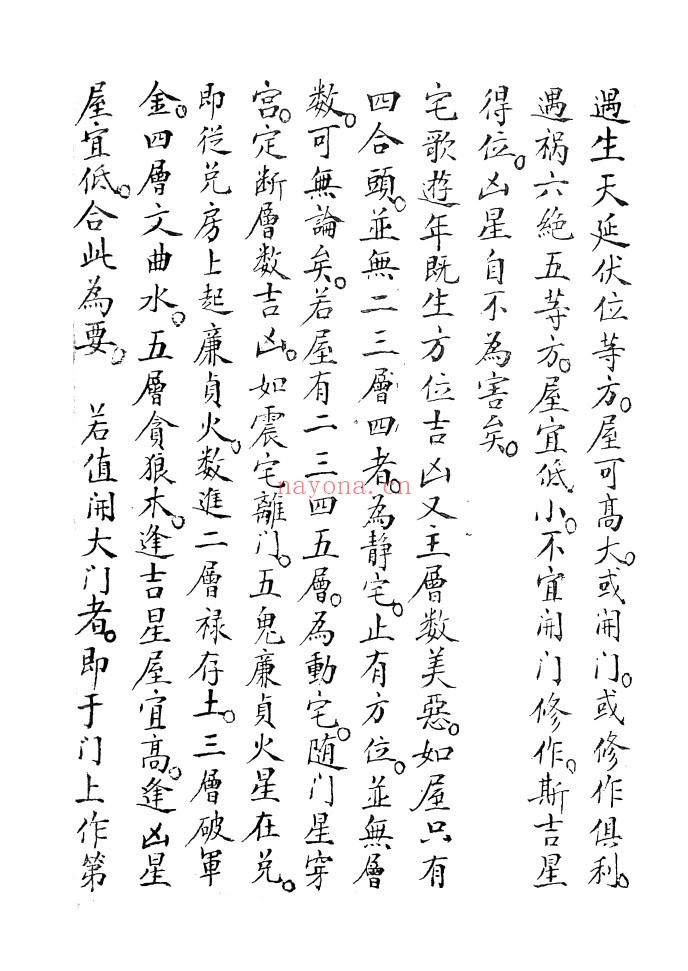 遇生天延伏位等方。屋可髙大。或開门。或修作俱利。
遇禍六絶五等方。屋宜低小。不宜開门修作。斯吉星
得位。凶星自不為害矣。
宅歌遊年既生方位吉凶又主層数美惡。如屋只有
四合頭。並無二三層四者。為静宅。止有方位。並無層
数。可無論矣。若屋有二三四五層。為動宅。随门星穿
宫。定断層数吉凶。如震宅離门。五鬼廉貞火星在兑。
即従兑房上起廉貞火。数進二層禄存土。三層破軍
金。四層文曲水。五層貪狼木。逢吉星屋宜髙。逢凶星
屋宜低。合此為要。 若值開大门者。即于门上作第
nayona.cn